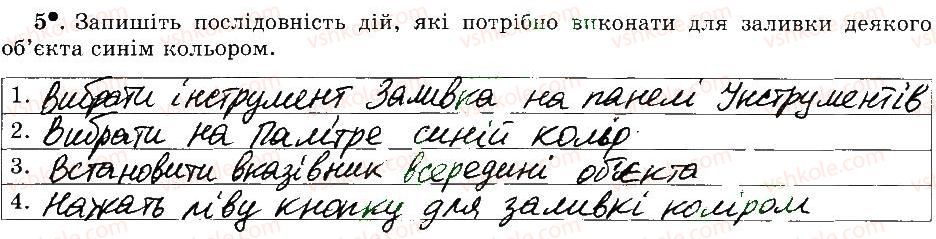 5●. Запишіть послідовність дій, які потрібно виконати для заливки деякого
об’єкта синім кольором.
1. Вибрати інструмент Заливка на панелі Інструментів
2. Вибрати на Палітре синій колір
3. Встановити вказівник всередині об'єкта
4. Нажать ліву кнопку для заливкі коліром